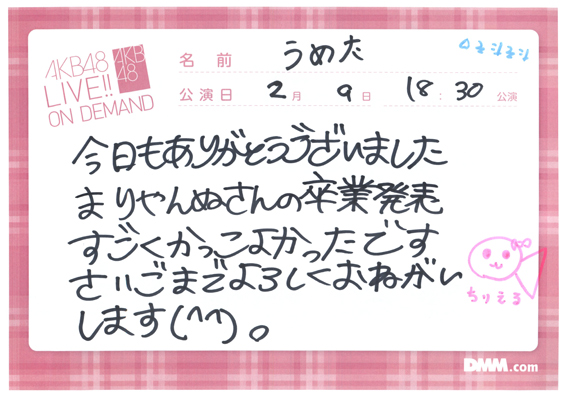 AKB48
LIVE!!
ON DEMAND
AKB
48
名前 うめた
公演日 2月 9日 18:30 公演
今日もありがとうございました
まりやんぬさんの卒業発表
すごくかっこよかったです
さいごまでよろしくおねがい
します(^^)。
ちりえる
DMM.com